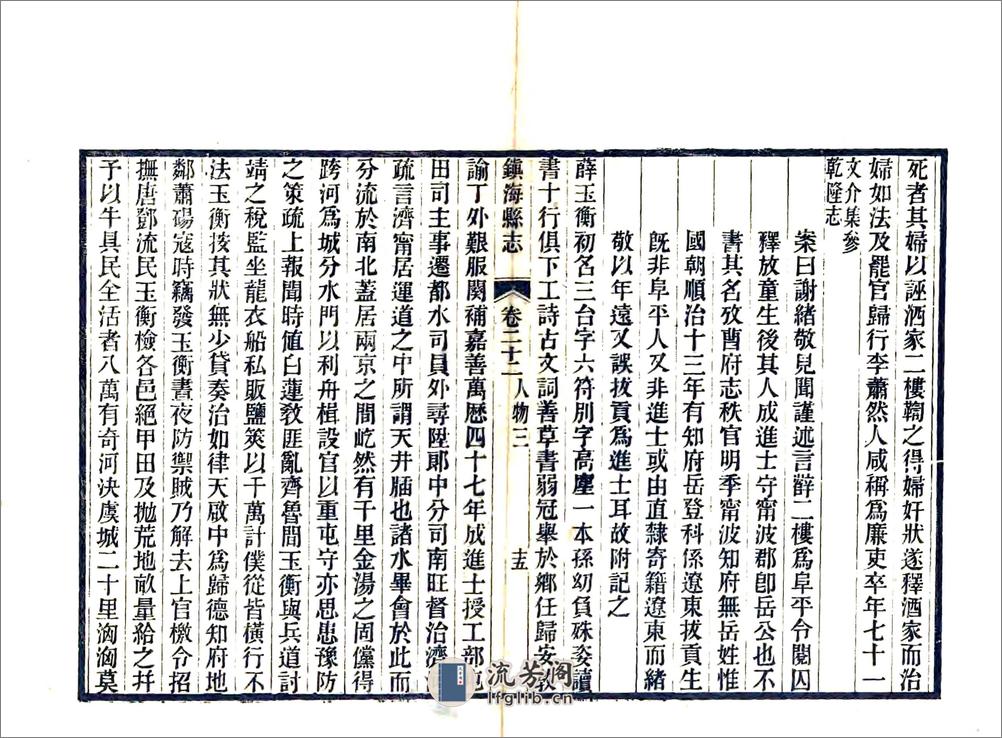 死者其婦以誣酒家二樓鞫之得婦奸狀遂釋酒家而治
婦如法及罷官歸行李蕭然人咸稱爲廉吏卒年七十一
文介集參
乾隆志
案曰謝緒敬見聞謹述言薛二樓爲阜平令閱囚
釋放童生後其人成進士守甯波郡卽岳公也不
書其名攷曹府志秩官明季甯波知府無岳姓惟
國朝順治十三年有知府岳登科係遼東拔貢生
旣非阜平人又非進士或由直隸寄籍遼東而緒
敬以年遠又誤拔貢爲進士耳故附記之
薛玉衡初名三台字六符別字高塵一本孫幼負殊姿讀
書十行俱下工詩古文詞善草書弱冠舉於鄉任歸安教
鎭海縣志 卷二十二 人物三 十五
諭丁外艱服闋補嘉善萬歷四十七年成進士授工部屯
田司主事遷都水司員外尋陞郎中分司南旺督治濟
疏言濟甯居運道之中所謂天井牐也諸水畢會於此而
分流於南北蓋居兩京之間屹然有千里金湯之固儻得
跨河爲城分水門以利舟楫設官以重屯守亦思患豫防
之策疏上報聞時値白蓮敎匪亂齊魯間玉衡與兵道討
靖之稅監坐龍衣船私販鹽筴以千萬計僕從皆橫行不
法玉衡按其狀無少貸奏治如律天啟中爲歸德知府地
鄰蕭碭寇時竊發玉衡晝夜防禦賊乃解去上官檄令招
撫唐鄧流民玉衡檢各邑絕甲田及拋荒地畝量給之幷
予以牛具民全活者八萬有奇河決虞城二十里洶洶莫
流芳阁
lfglib.cn